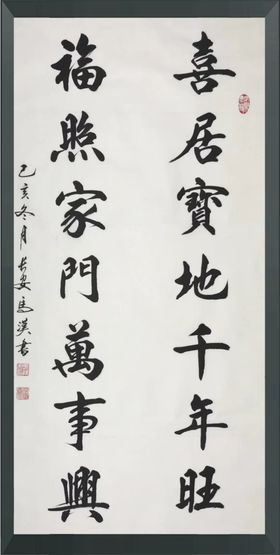 喜居寶地千年旺
福照家門萬事興
己亥冬月長安馬漢書